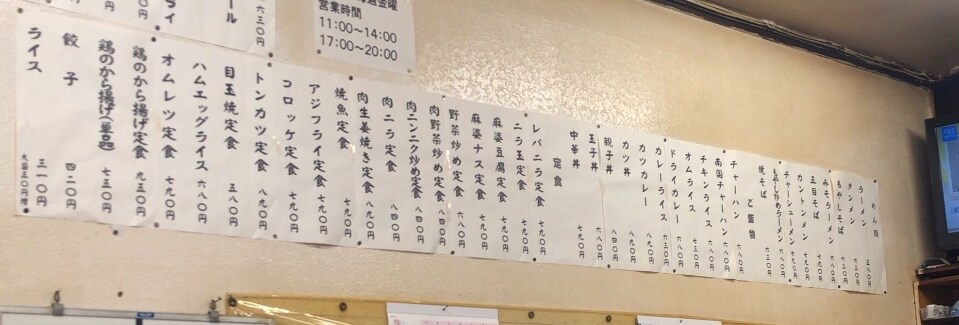 めん類
ラーメン 五八〇円
タンメン 六三〇円
もやしそば 六三〇円
みそラーメン 六八〇円
五目そば 七九〇円
カントンメン 七九〇円
チャーシューメン 七九〇円
もやし炒めラーメン 六八〇円
焼そば 六三〇円
ご飯物
チャーハン 六八〇円
南国チャーハン 六八〇円
チキンライス 六八〇円
オムライス 七三〇円
ドライカレー 六八〇円
カレーライス 六三〇円
カツカレー 八九〇円
カツ丼 八四〇円
親子丼 六八〇円
玉子丼 六八〇円
中華丼 七九〇円
定食
レバニラ定食 七九〇円
ニラ玉定食 七九〇円
麻婆豆腐定食 七九〇円
麻婆ナス定食 七九〇円
野菜炒め定食 六八〇円
肉野菜炒め定食 八四〇円
肉ニンニク炒め定食 八四〇円
肉ニラ定食 八四〇円
肉生姜焼き定食 八九〇円
焼魚定食 七九〇円
アジフライ定食 七九〇円
コロッケ定食 七九〇円
トンカツ定食 八九〇円
目玉焼定食 五八〇円
ハムエッグライス 六八〇円
オムレツ定食 七九〇円
鶏のから揚げ定食 九五〇円
鶏のから揚げ(単品) 七五〇円
餃子 四二〇円
ライス 三一〇円
大盛五〇円増
ール 六三〇円
ライ
営業時間
11:00～14:00
17:00～20:00